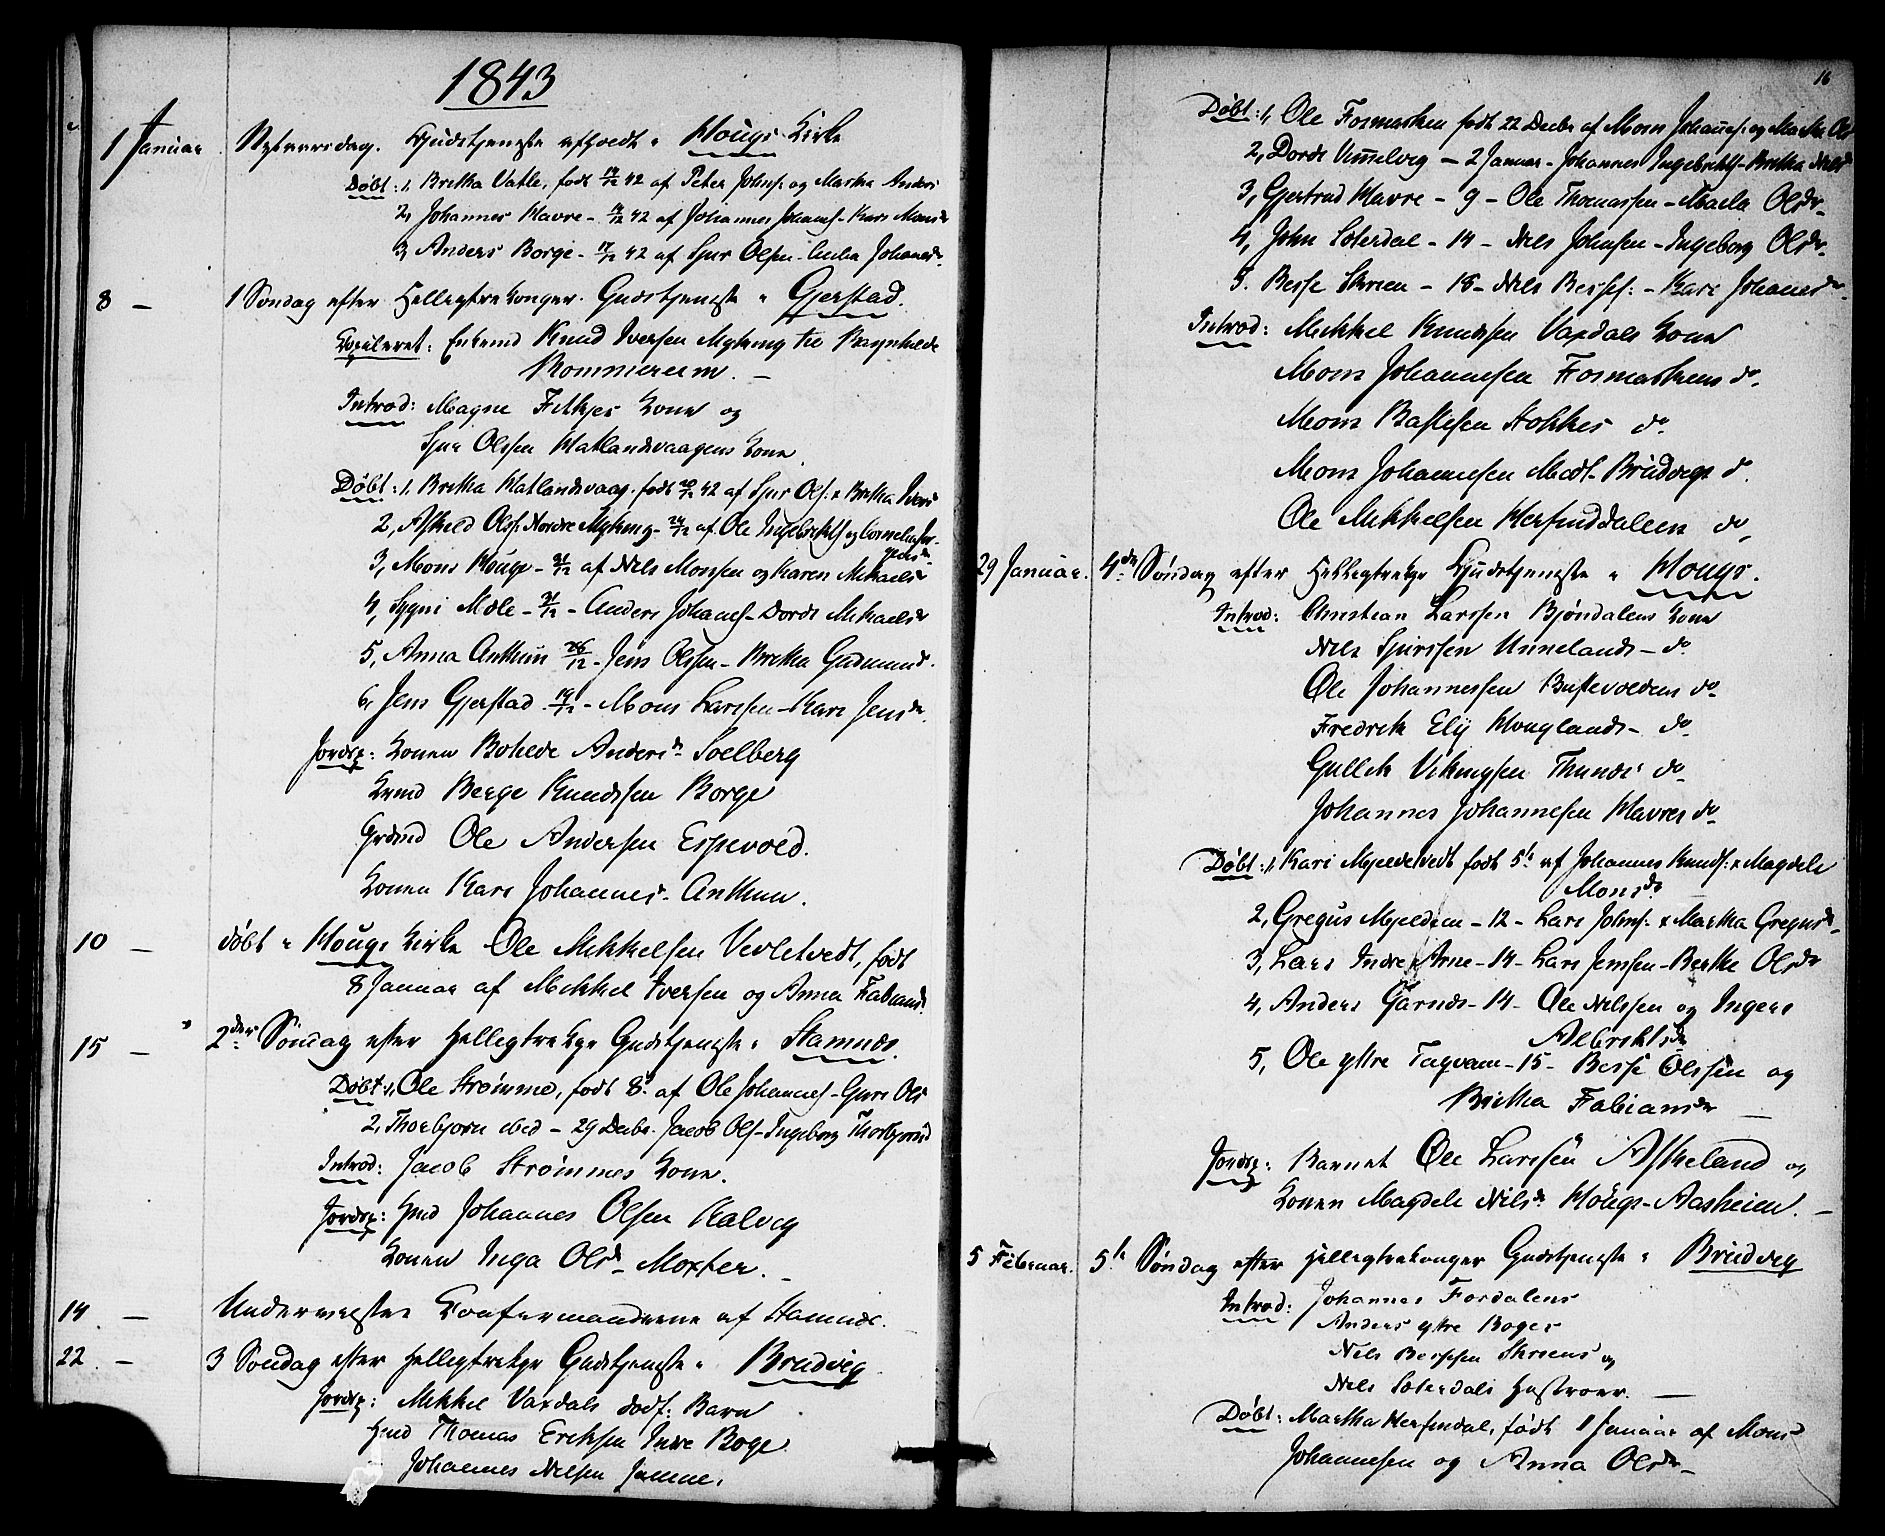 1843
1 Januar. Nytaarsdag. Gudstjeneste afholdt i Hougs Kirke
Døbt: 1, Britha Vatle, født 14/12 42 af Peter Johnss: og Martha Anders
2, Johannes Havre - 14/12 42 af Johannes Johaness - Kari Monsdr
3, Anders Borge - 17/12 42 af Sjur Olsen - Johansdr
8 — 1 Søndag efter Helligtrekonger. Gudstjeneste i Gjerstad.
Copuleret: Enkemd Knud Iversen Myking til Ragnhilde
Rommereim. —
Introd: Magne Fitkjes Kone og
Sjur Olssen Hatlandsvaagens Kone
Døbt: 1, Britha Hatlandsvaag. født 20/12 42 af Sjur Ols: & Britha Ivers
2, Askild Olss. Nordre Myking - 24/12 af Ole Ingebrikts og Cornelia Jør-
gensdr
3, Mons Houge - 31/12 af Nils Monsen og Karen Mikaelsdr
4, Sygni Mæle - 31/12 - Anders Johaness - Dorde Mikaelsdr
5, Anna Anthun 26/12 - Jens Olssen - Britha Gudmunds.
6, Jens Gjerstad 19/12 - Mons Larssen - Kari Jensdr.
Jordsp: Konen Bohlde Andersdr Soelberg
Hmd Berge Knudssen Borge
Grdmd Ole Andersen Espevold.
Konen Kari Johannesd. Anthun.
10 — døbt i Hougs Kirke Ole Mikkelsen Vevletvedt, født
8 Januar af Mikkel Iversen og Anna Fabiansd.
15 — 2den Søndag efter Helligtrekgr Gudstjeneste i Stamnæs.
Døbt: 1, Ole Strømme, født 8de af Ole Johanness - Guri Ols
2, Thorbjørn ibid - 29 Decbr. Jacob Ols - Ingeborg Thorbjørnsd
Introd: Jacob Strømmes Kone.
Jordsp: Hmd Johannes Olsen Kalvig
Konen Inga Olsd - Moxter. —
19 — Underviiste Confirmanderne af Stamnæs.
22 — 3 Søndag efter Helligtrekgr Gudstjeneste i Brudvig
Jordsp: Mikkel Vaxdals dødf: Barn
Hmd Thomas Eriksen Indre Boge.
Johannes Nilsen Jamne.
16
Døbt: 1, Ole Fosmarken født 22 Decbr af Mons Johaness: og Martha Ols
2, Dorde Vimmelvig - 2 Januar - Johannes Ingebrikts - Britha Nilsd
3, Gjertrud Havre - 9 - Ole Thomassen - Marta Olsdr
4, John Soterdal - 14 - Nils Johnsen - Ingeborg Olsdr.
5. Berse Skreen - 18 - Nils Berses: - Kari Johanesdr.
Introd: Mikkel Knudssen Vaxdals Kone
Mons Johannesen Fosmarkens do.
Mons Bastesen Stokkes do.
Mons Johannesen Medt-Brudvigs do.
Ole Mikkelsen Herfinddalen do.
29 Januar. 4de Søndag efter Helligtrekgr Gudstjeneste i Hougs.
Introd: Christian Larssen Bjøndalens Kone
Nils Sjurssen Unnelands - do.
Ole Johannessen Bustevoldens do.
Fredrik Ely Houglands - do.
Gullik Vikingsen Thunds do.
Johannes Johannesen Havres do.
Døbt: 1, Kari Mjeldetvedt født 5te af Johannes Knuds: & Magdeli
Monsdr
2, Gregus Mjeldem - 12 - Lars Johns: & Martha Gregusdr
3, Lars Indre Arne - 14 - Lars Jenssen - Berthe Olsdr
4, Anders Garnæs - 14 - Ole Nilssen og Ingeri
Albriktsdr
5, Ole ytre Tagvam - 15 - Berse Olssen og
Britha Fabiansdr —
Jordsp: Barnet Ole Larssen Askeland og
Konen Magdeli Nilsdr Hougs-Aasheien. —
5 Februar. 5te Søndag efter Helligtrekonger Gudstjeneste i Brudvig
Introd: Johannes Fosdalens
Anders ytre Boges
Nils Bersesen Skreens og
Nils Soterdals Hustroer. —
Døbt: Martha Herfindal, født 1 Januar af Mons
Johannesen og Anna Olsdr —